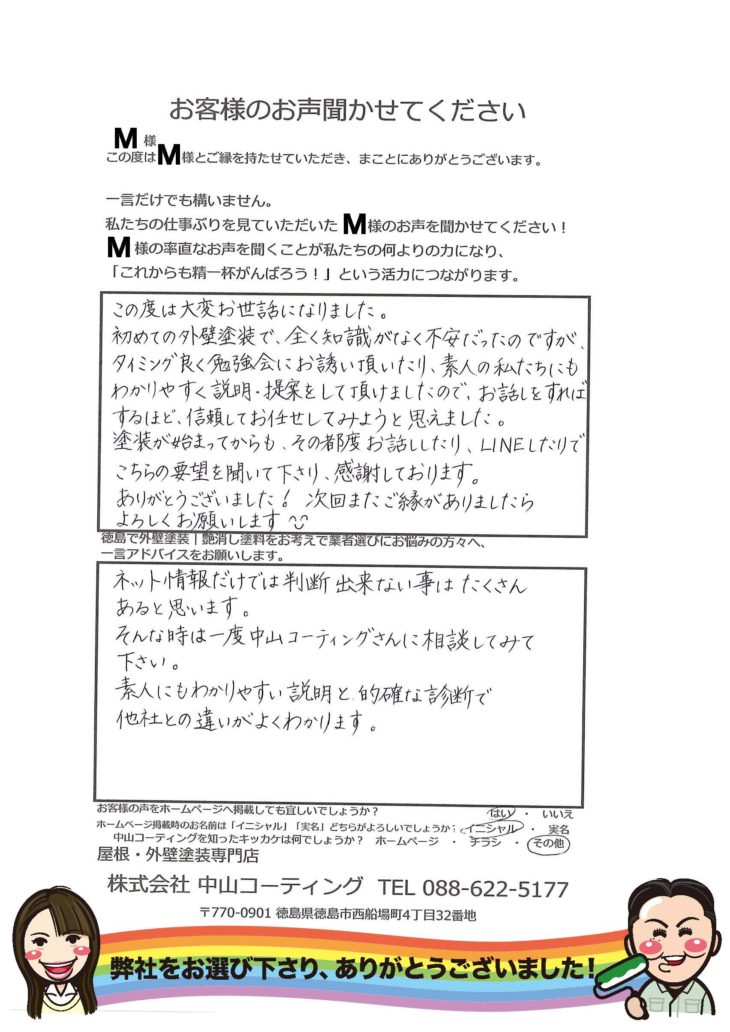 お客様のお声聞かせてください
M 様
この度はM様とご縁を持たせていただき、まことにありがとうございます。
一言だけでも構いません。
私たちの仕事ぶりを見ていただいた M様のお声を聞かせてください！
M 様の率直なお声を聞くことが私たちの何よりの力になり、
「これからも精一杯がんばろう！」という活力につながります。
この度は大変お世話になりました。
初めての外壁塗装で、全く知識がなく不安だったのですが、
タイミング良く勉強会にお誘い頂いたり、素人の私たちにも
わかりやすく説明・提案をして頂けましたので、お話しをすれば
するほど、信頼してお任せしてみようと思えました。
塗装が始まってからも、その都度お話ししたり、LINEしたりで
こちらの要望を聞いて下さり、感謝しております。
ありがとうございました！ 次回またご縁がありましたら
よろしくお願いします
徳島で外壁塗装｜艶消し塗料をお考えで業者選びにお悩みの方々へ、
一言アドバイスをお願いします。
ネット情報だけでは判断出来ない事はたくさん
あると思います。
そんな時は一度中山コーティングさんに相談してみて
下さい。
素人にもわかりやすい説明と的確な診断で
他社との違いがよくわかります。
お客様の声をホームページへ掲載しても宜しいでしょうか？ はい ・ いいえ
ホームページ掲載時のお名前は「イニシャル」「実名」どちらがよろしいでしょうか？ イニシャル ・ 実名
中山コーティングを知ったキッカケは何でしょうか？ ホームページ ・ チラシ ・ その他
屋根・外壁塗装専門店
株式会社 中山コーティング TEL 088-622-5177
〒770-0901 徳島県徳島市西船場町4丁目32番地
弊社をお選び下さり、ありがとうございました！